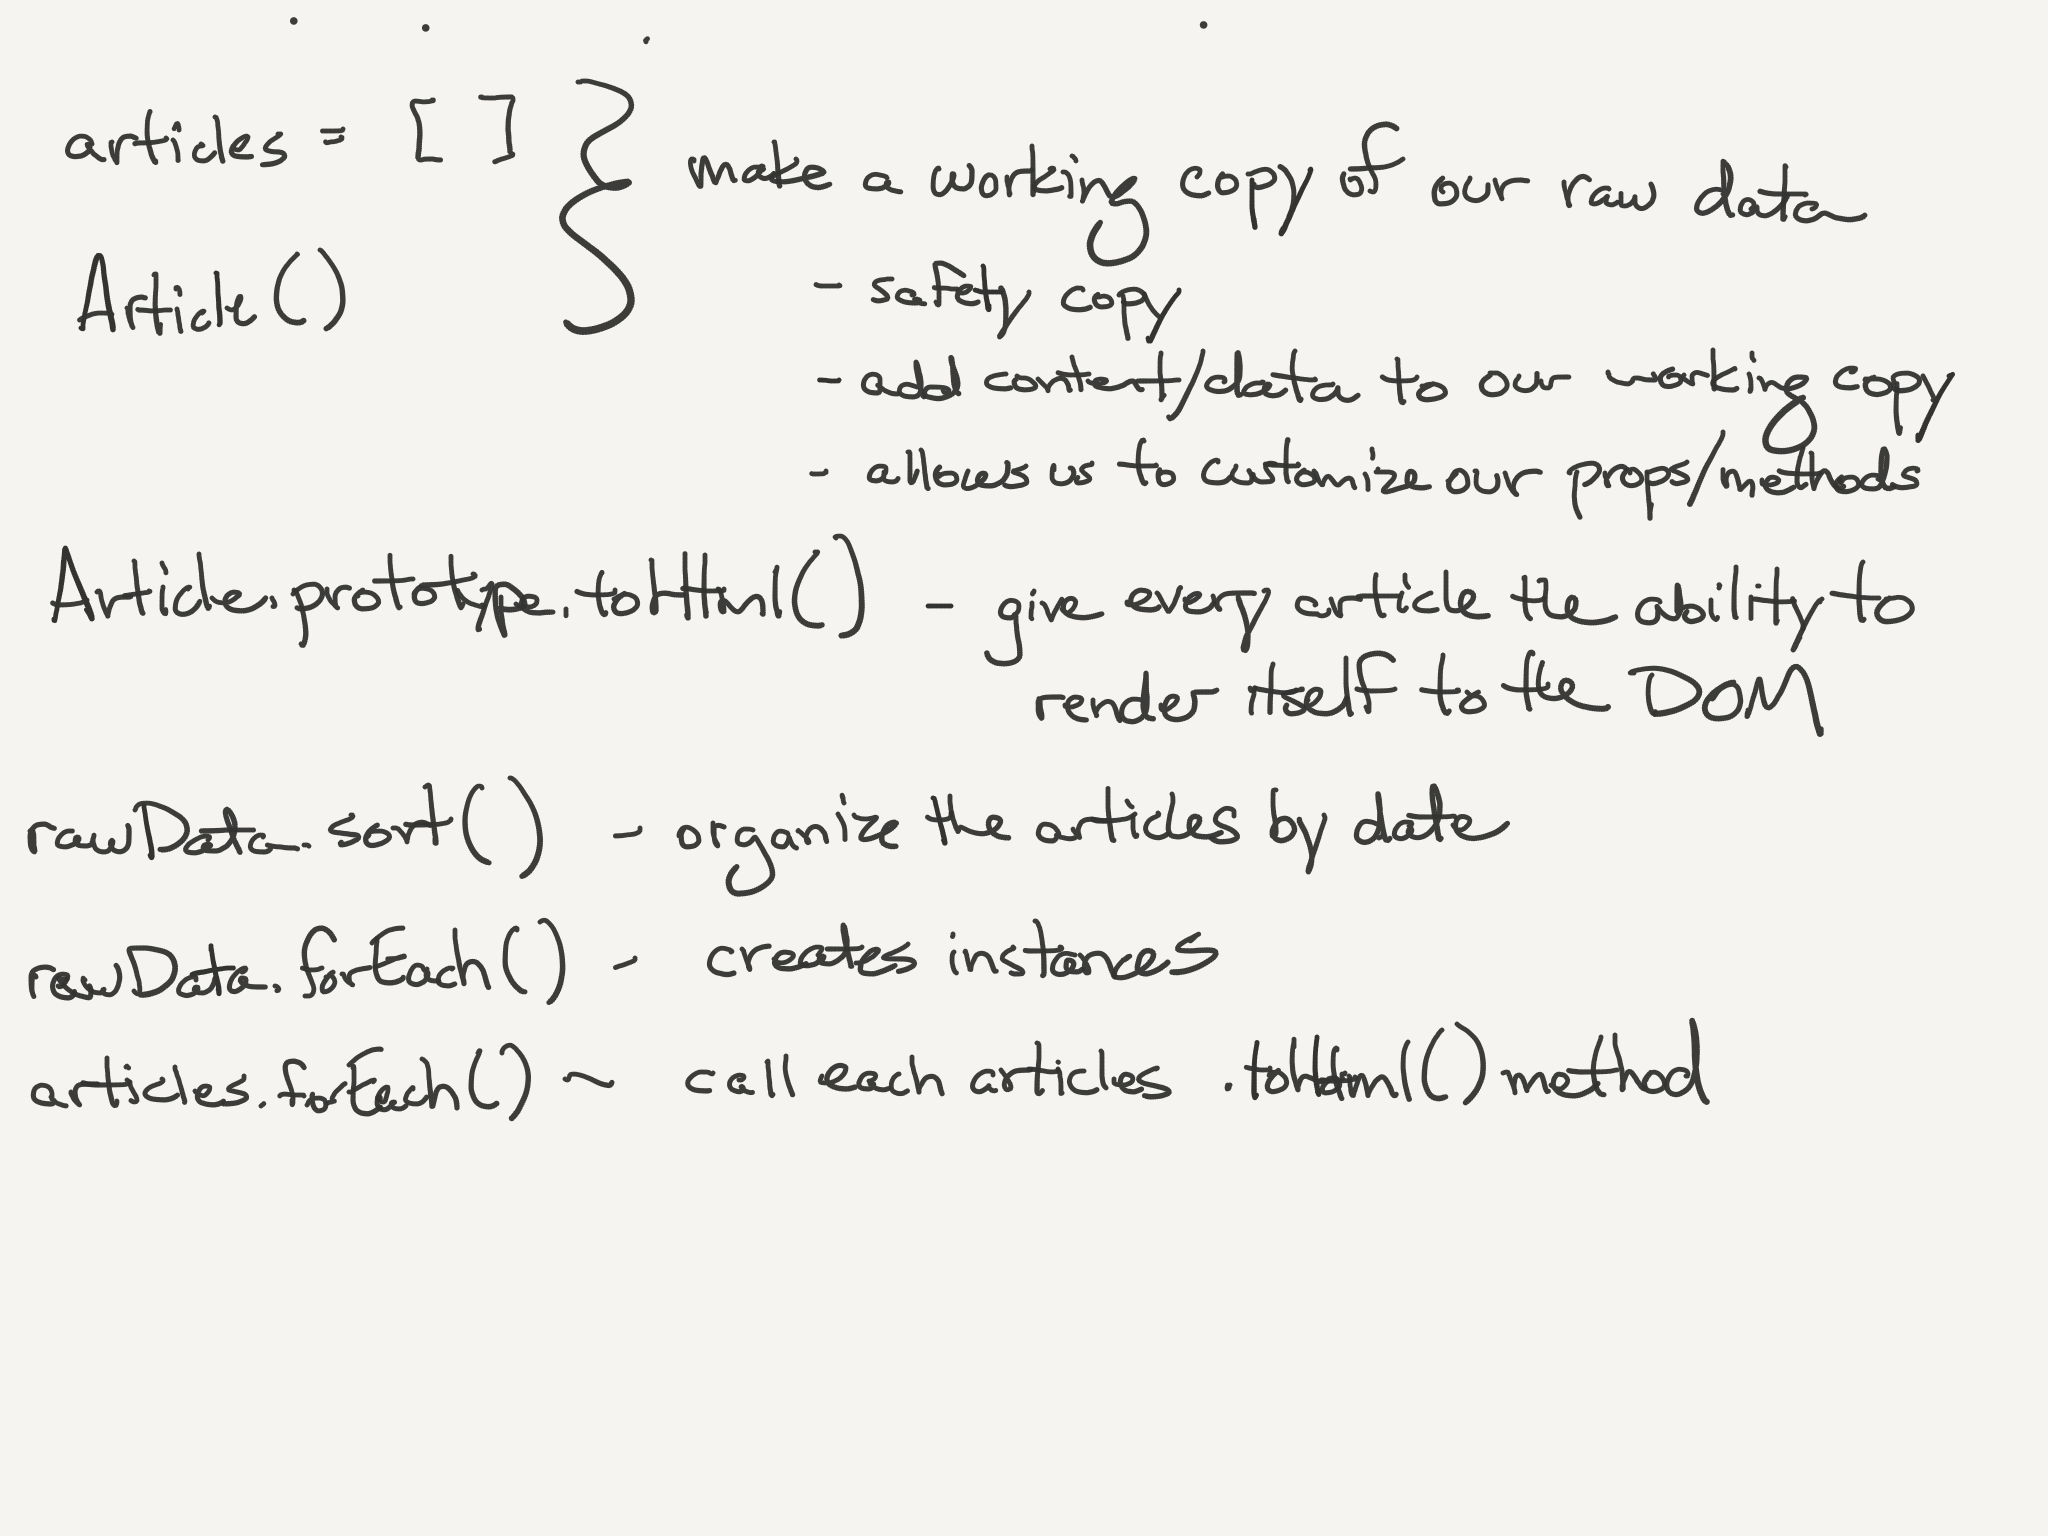 articles = [ ]
make a working copy of our raw data
Article()
- safety copy
- add content/data to our working copy
- allows us to customize our props/methods
Article.prototype.toHtml() - give every article the ability to
render itself to the DOM
rawData.sort() - organize the articles by date
rawData.forEach() - creates instances
articles.forEach() ~ call each articles .toHtml() method